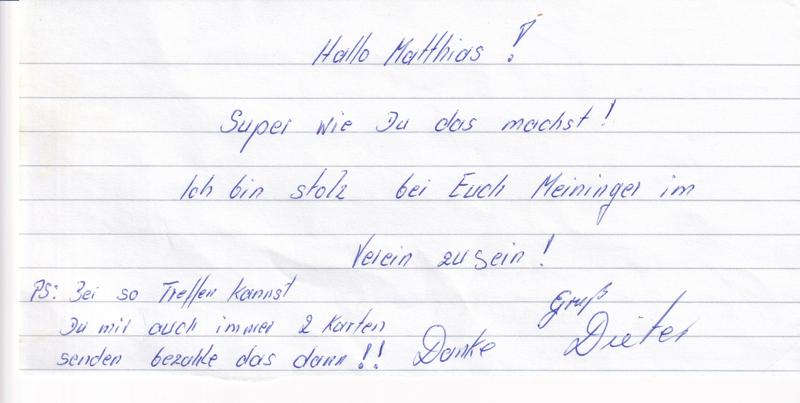 Hallo Matthias !
Super wie Du das machst!
Ich bin stolz bei Euch Meininger im
Verein zu sein!
PS: Bei so Treffen kannst
Du mir auch immer 2 Karten
senden bezahle das dann!! Danke
Gruß
Dieter